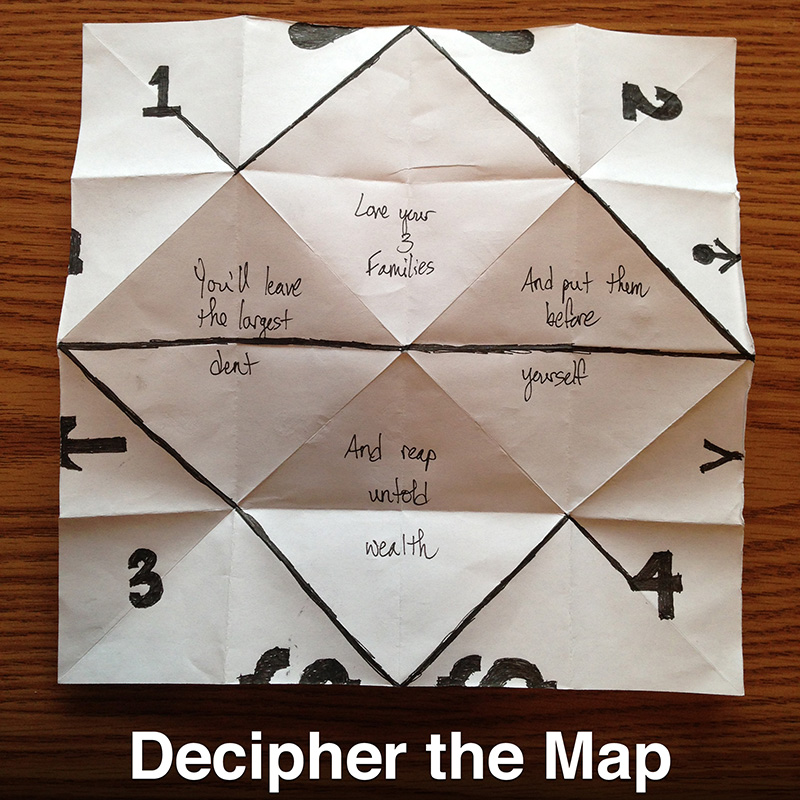 1
2
Love your
3
Families
You'll leave
the largest
dent
And put them
before
yourself
And reap
untold
wealth
3
4
Decipher the Map